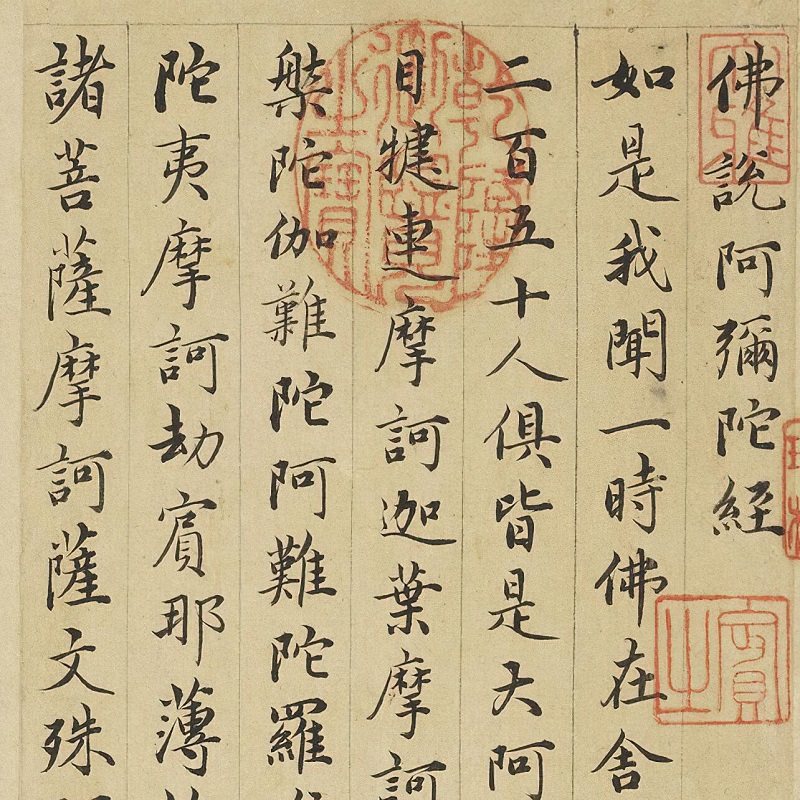 佛說阿彌陀經
如是我聞一時佛在舍
二百五十人俱皆是大阿
目犍連摩訶迦葉摩訶
槃陀伽難陀阿難陀羅
陀夷摩訶劫賓那薄
諸菩薩摩訶薩文殊